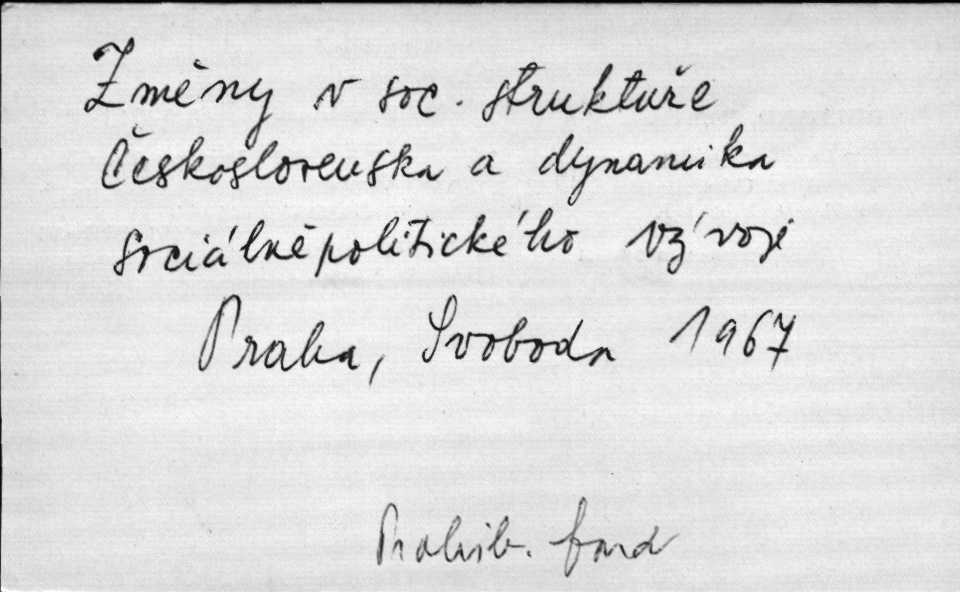 Změny v soc. struktuře
Československa a dynamika
sociálněpolitického vývoje
Praha, Svoboda 1967
Prohib. fond